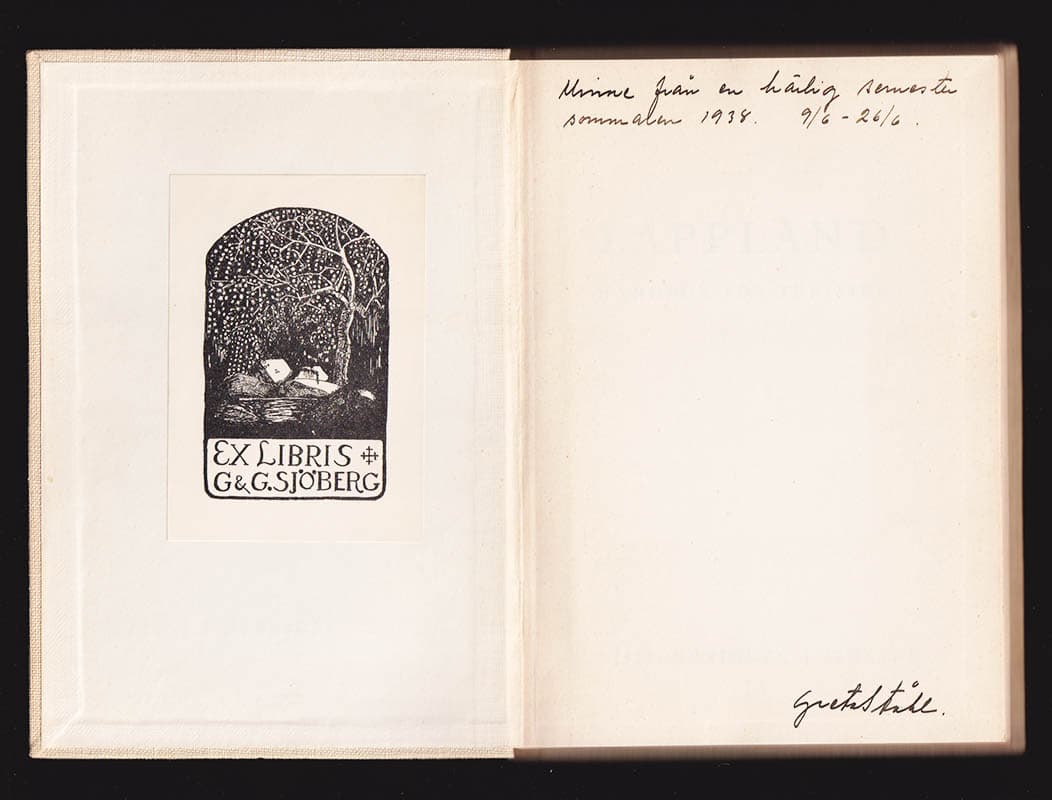 EX LIBRIS
G & G. SJÖBERG
Minne från en härlig semester
sommaren 1938. 9/6 - 26/6.
LAPPLAND
Greta Ståhl.